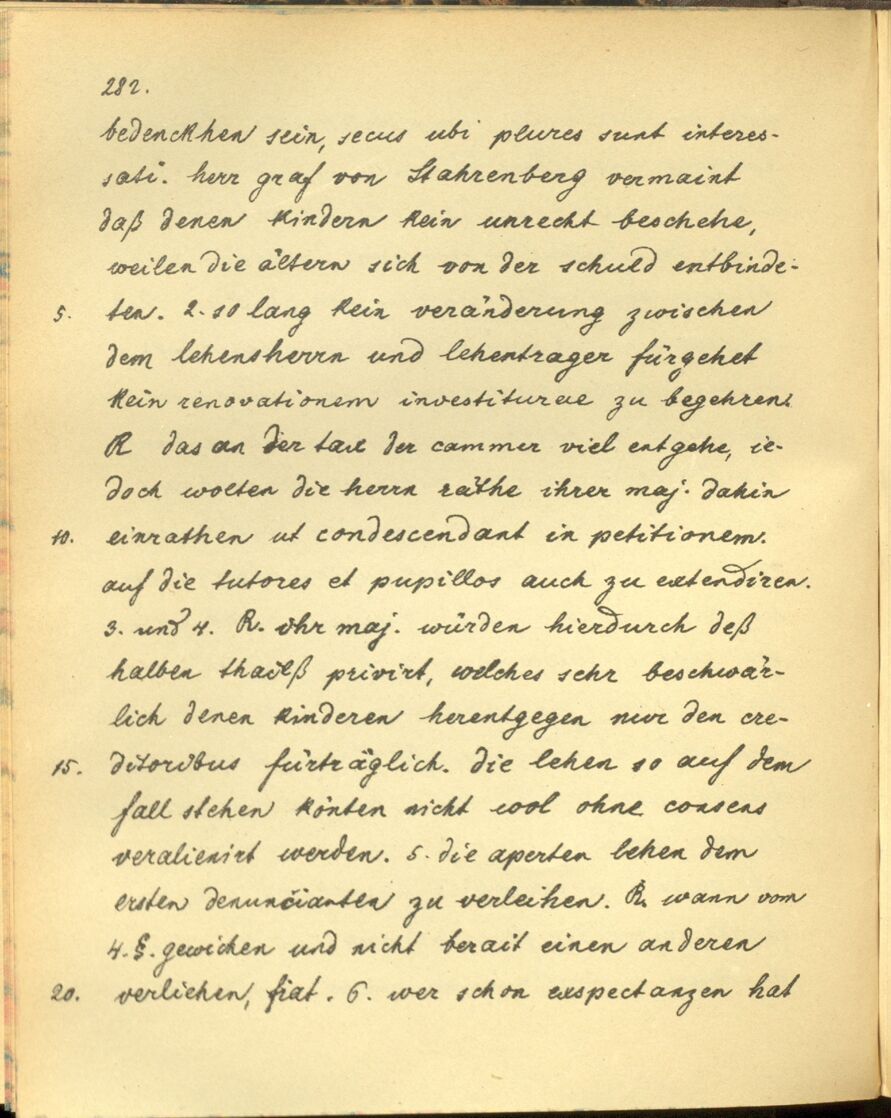 282.
bedenckhen sein, secus ubi plures sunt interes-
sati. herr graf von Stahrenberg vermaint
daß denen kindern kein unrecht beschehe,
weilen die ältern sich von der schuld entbinde-
5. ten. 2. so lang kein veränderung zwischen
dem lehensherrn und lehentrager fürgehet
kein renovationem investiturae zu begehren.
R das an der tax der cammer viel entgehe, ie-
doch wolten die herrn räthe ihrer maj. dahin
10. einrathen ut condescendant in petitionem.
auf die tutores et pupillos auch zu extendiren.
3. und 4. R. ihr maj. würden hierdurch deß
halben thailß privirt, welches sehr beschwär-
lich denen kinderen herentgegen nur den cre-
15. ditoribus fürträglich. die lehen so auf dem
fall stehen könten nicht wol ohne consens
veralienirt werden. 5. die aperten lehen dem
ersten denuncianten zu verleihen. R. wann vom
4. §. gewichen und nicht berait einen anderen
20. verliehen, fiat. 6. wer schon exspectanzen hat